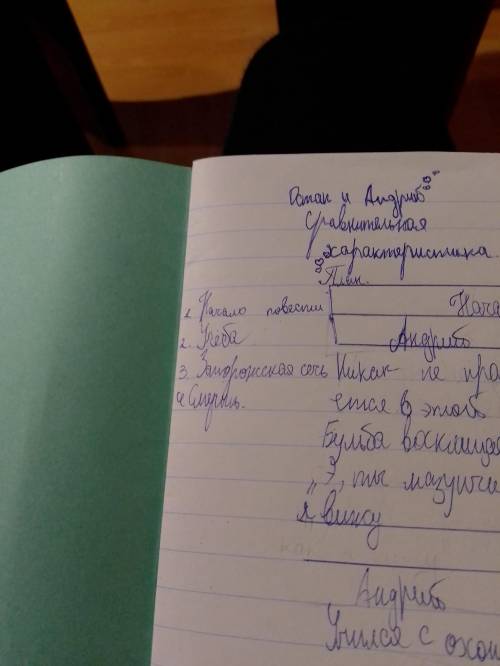 Остап и Андрий
Сравнительная
характеристика.
План.
1. Начало повести
2. Учёба
3. Запорожская сечь
4. Смерть.
Нача
Андрий
Никак не про
ется в этом
Бульба восклицае
„Э, ты мазунчи
я вижу
Андрий
Учился с охот